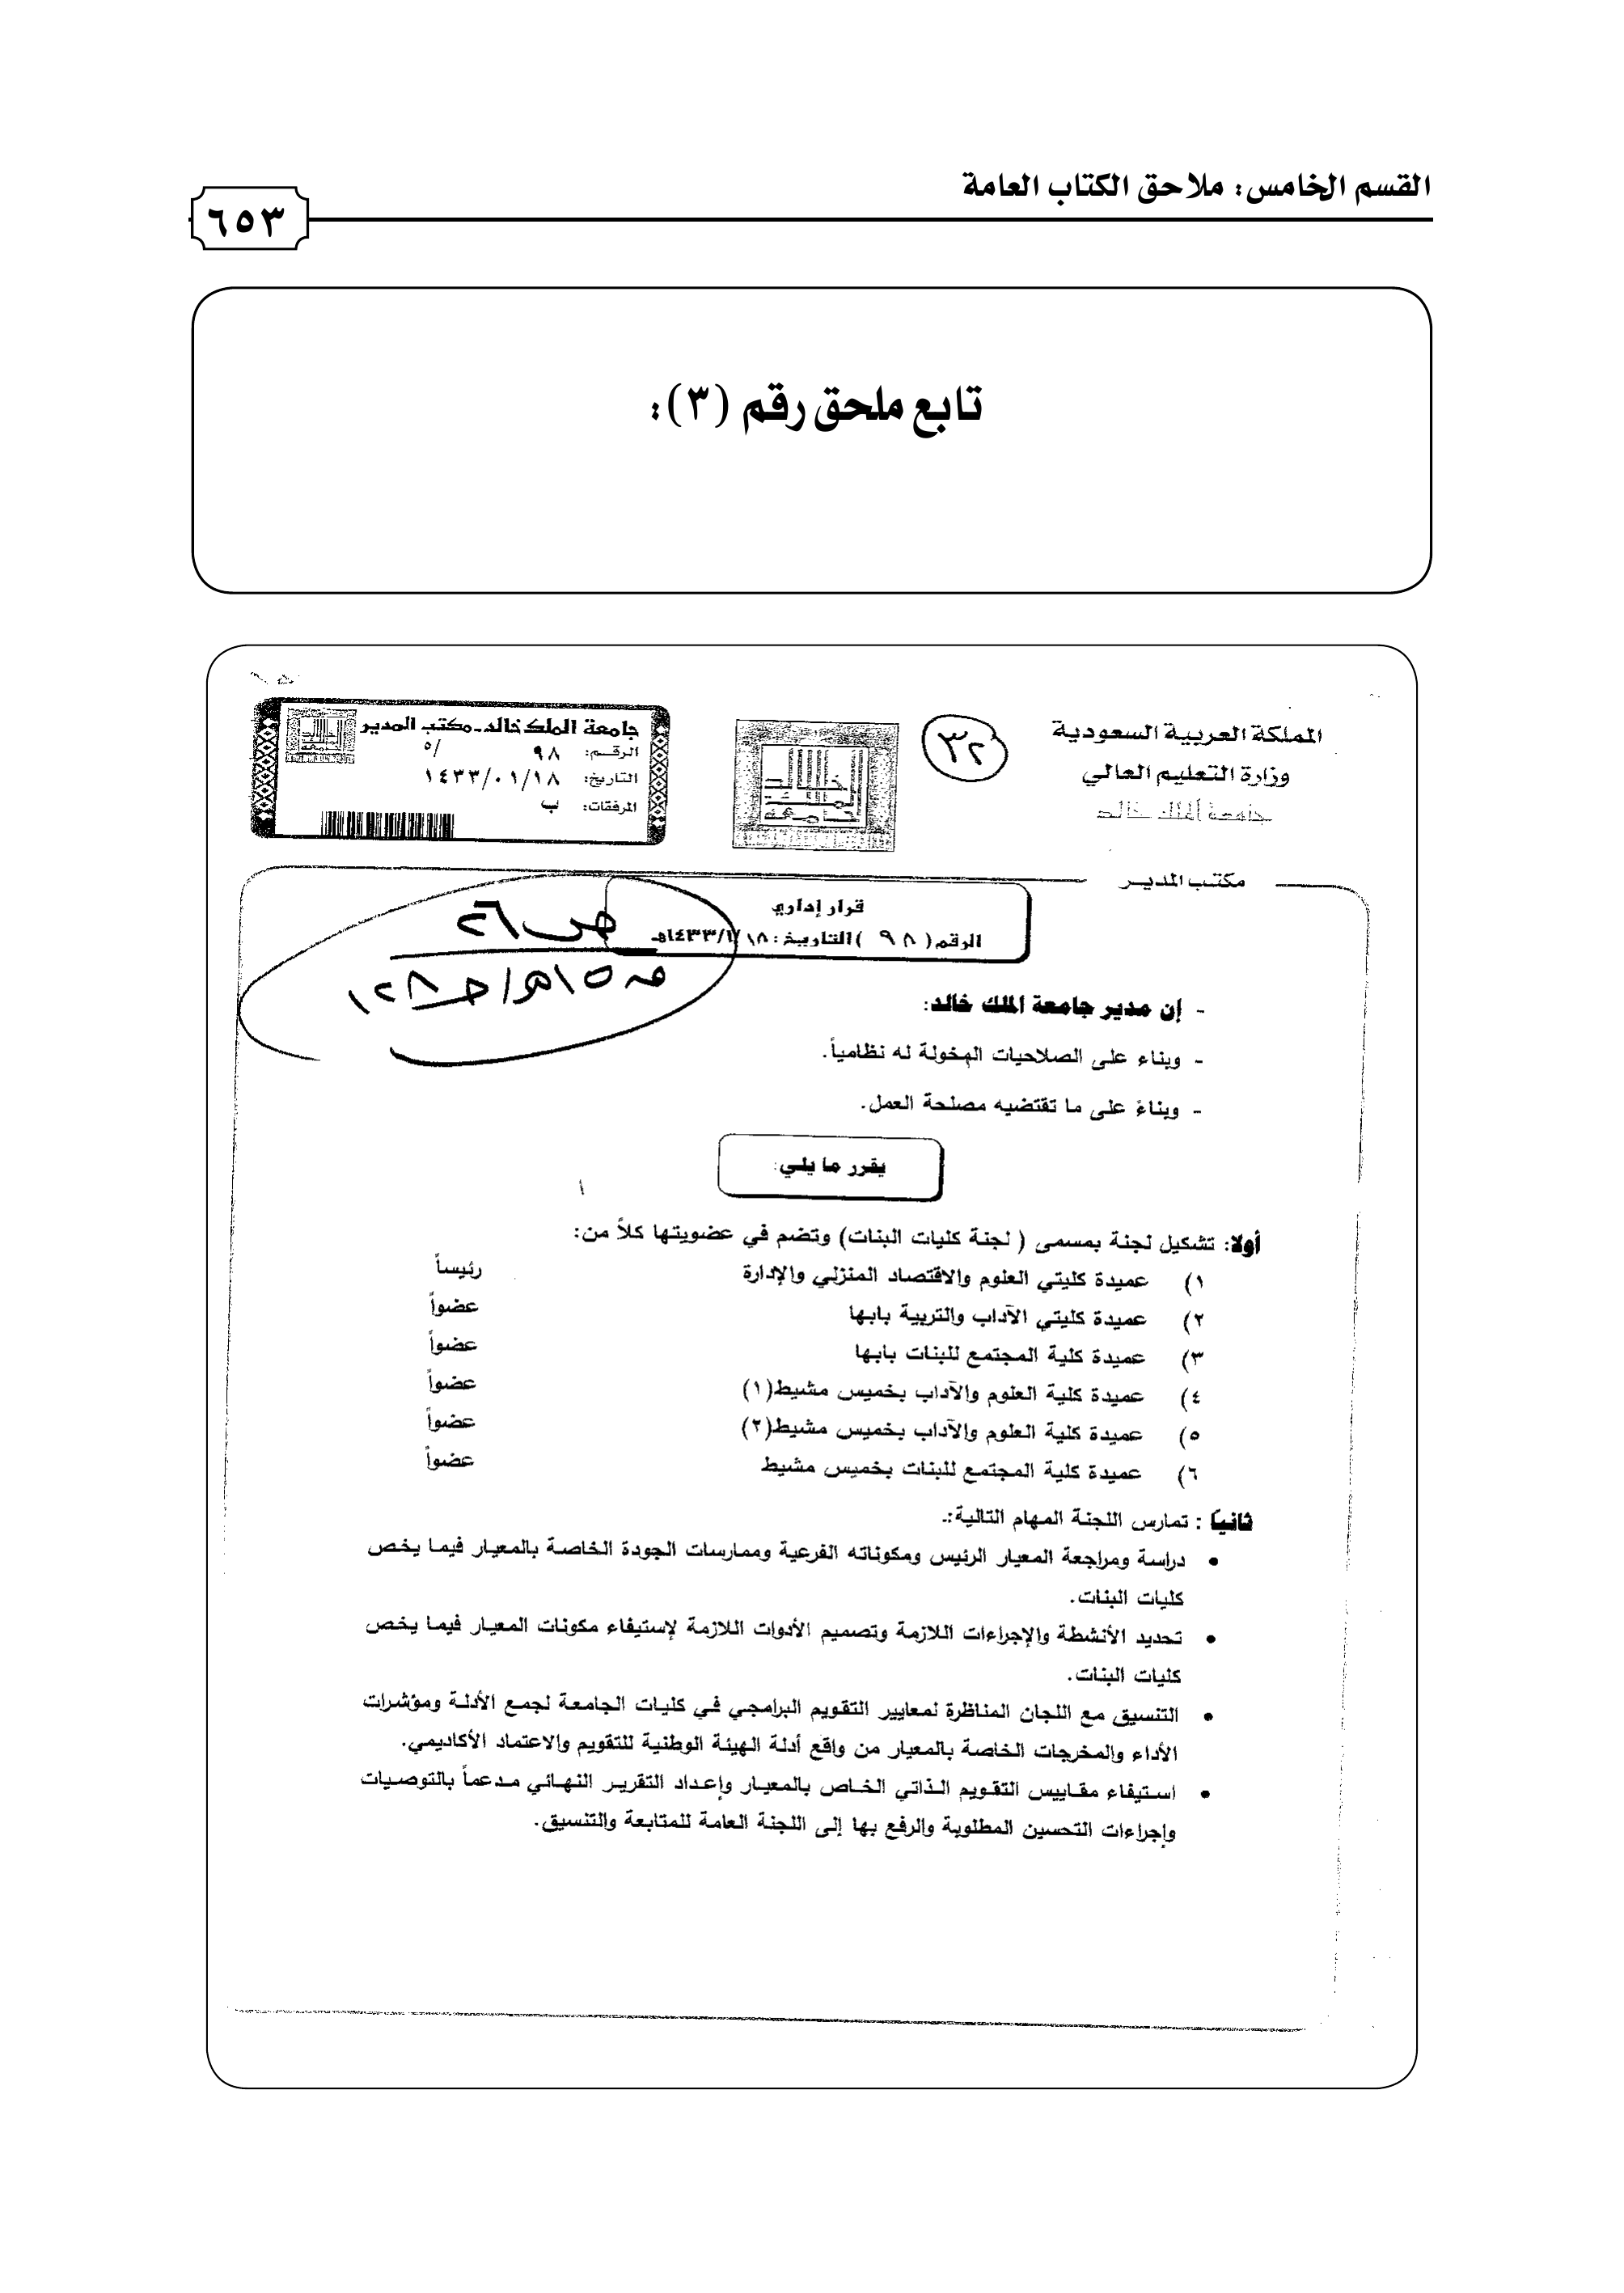 القسم الخامس: ملاحق الكتاب العامة
٦٥٣
تابع ملحق رقم (٣):
المملكة العربية السعودية
وزارة التعليم العالي
جامعة الملك خالد
مكتب المدير
٣٢
جامعة الملك خالد-مكتب المدير
الرقم: ٩٨ /٥
التاريخ: ١٤٣٣/٠١/١٨
المرفقات: ب
قرار إداري
الرقم( ٩٨ )التاريخ: ١٤٣٣/١/١٨هـ
ص ٢٦
- إن مدير جامعة الملك خالد:
- وبناء على الصلاحيات المخولة له نظامياً.
- وبناءً على ما تقتضيه مصلحة العمل.
يقرر ما يلي:
أولا: تشكيل لجنة بمسمى ( لجنة كليات البنات) وتضم في عضويتها كلاً من:
١) عميدة كليتي العلوم والاقتصاد المنزلي والإدارة رئيساً
٢) عميدة كليتي الآداب والتربية بابها عضواً
٣) عميدة كلية المجتمع للبنات بابها عضواً
٤) عميدة كلية العلوم والآداب بخميس مشيط(١) عضواً
٥) عميدة كلية العلوم والآداب بخميس مشيط(٢) عضواً
٦) عميدة كلية المجتمع للبنات بخميس مشيط عضواً
ثانياً : تمارس اللجنة المهام التالية:ـ
• دراسة ومراجعة المعيار الرئيس ومكوناته الفرعية وممارسات الجودة الخاصة بالمعيار فيما يخص
كليات البنات.
• تحديد الأنشطة والإجراءات اللازمة وتصميم الأدوات اللازمة لإستيفاء مكونات المعيار فيما يخص
كليات البنات.
• التنسيق مع اللجان المناظرة لمعايير التقويم البرامجي في كليات الجامعة لجمع الأدلة ومؤشرات
الأداء والمخرجات الخاصة بالمعيار من واقع أدلة الهيئة الوطنية للتقويم والاعتماد الأكاديمي.
• استيفاء مقاييس التقويم الذاتي الخاص بالمعيار وإعداد التقرير النهائي مدعماً بالتوصيات
وإجراءات التحسين المطلوبة والرفع بها إلى اللجنة العامة للمتابعة والتنسيق.